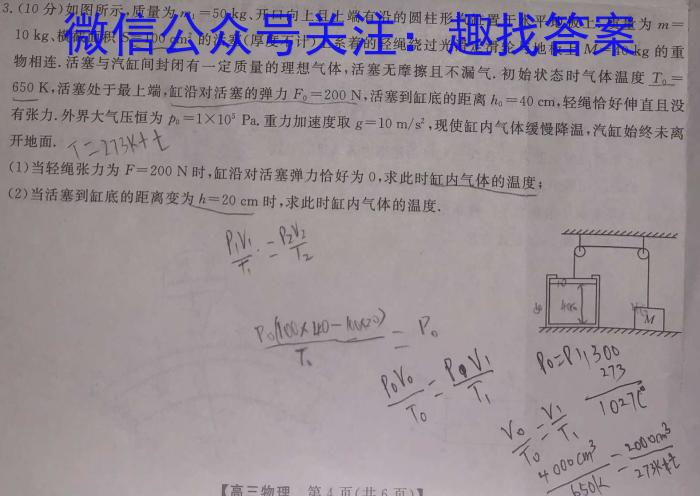 3.(10分)如图所示,质量为m =50 kg、开口向上且上端有沿的圆柱形 置于水平地板上,质量为m=
微信公众号关注：趣找答案
10 kg、横截面积S=100 cm²的活塞(厚度不计) 系着的轻绳绕过光滑定滑轮 地板上M= kg的重
物相连.活塞与汽缸间封闭有一定质量的理想气体,活塞无摩擦且不漏气.初始状态时气体温度 T₀=
650 K,活塞处于最上端,缸沿对活塞的弹力 F₀=200 N,活塞到缸底的距离 h₀=40 cm,轻绳恰好伸直且没
有张力.外界大气压恒为 p₀=1×10⁵ Pa.重力加速度取 g=10 m/s²,现使缸内气体缓慢降温,汽缸始终未离
开地面.
T=273K+t
(1)当轻绳张力为 F=200 N 时,缸沿对活塞弹力恰好为 0,求此时缸内气体的温度;
(2)当活塞到缸底的距离变为 h=20 cm 时,求此时缸内气体的温度.
P₁V₁/T₁=P₂V₂/T₂
M
P₀(100×40-)/T₀=P₀
P₀V₀/T₀=P₀V₁/T₁
P₀=P₁
300
273
1027℃
V₀/T₀=V₁/T₁
4000cm³/650K=2000cm³/273K+t
【高三物理 第4页(共6页)】